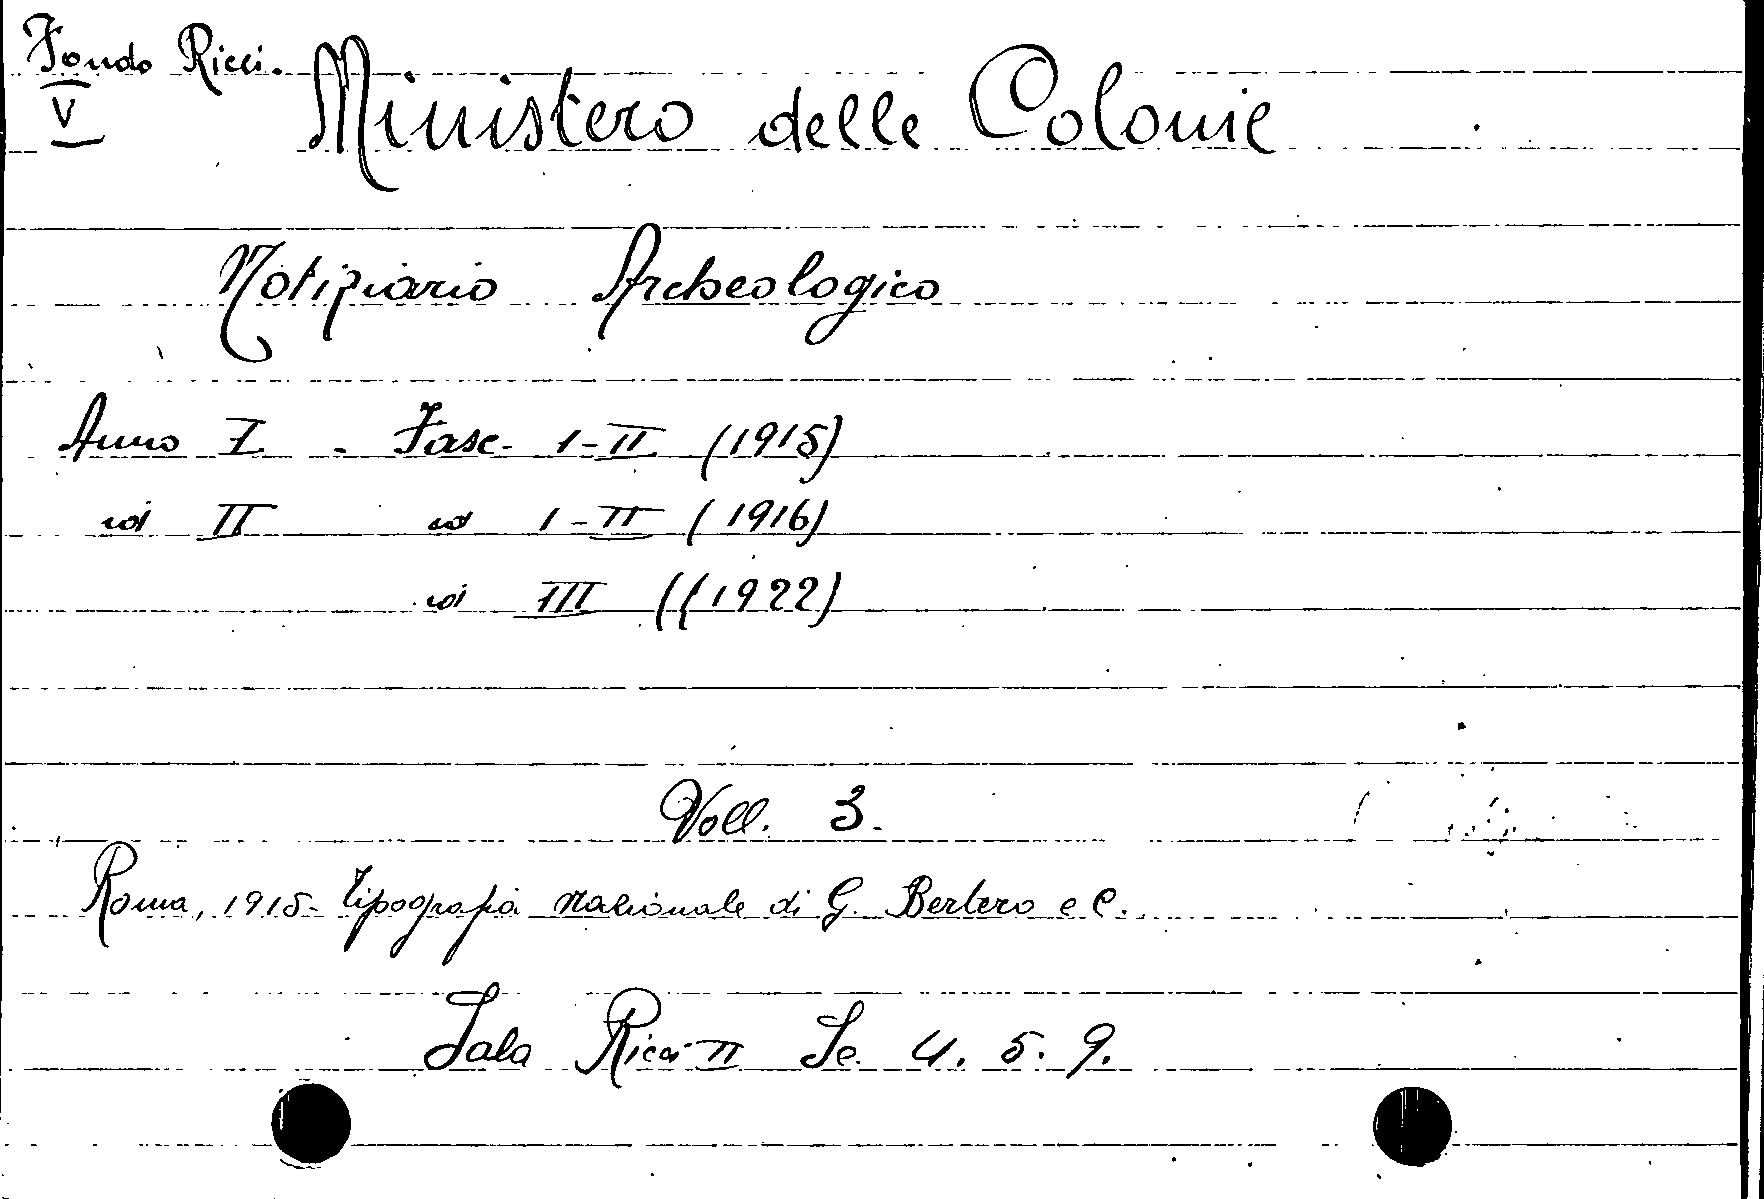 Fondo Ricci.
V
Ministero delle Colonie
Notiziario Archeologico
Anno I - Fasc. I-II (1915)
id II id I-II (1916)
id III ((1922)
Voll. 3.
Roma, 1915- tipografia nazionale di G. Bertero e C.
Sala Ricci II Sc. 4. 5. 9.